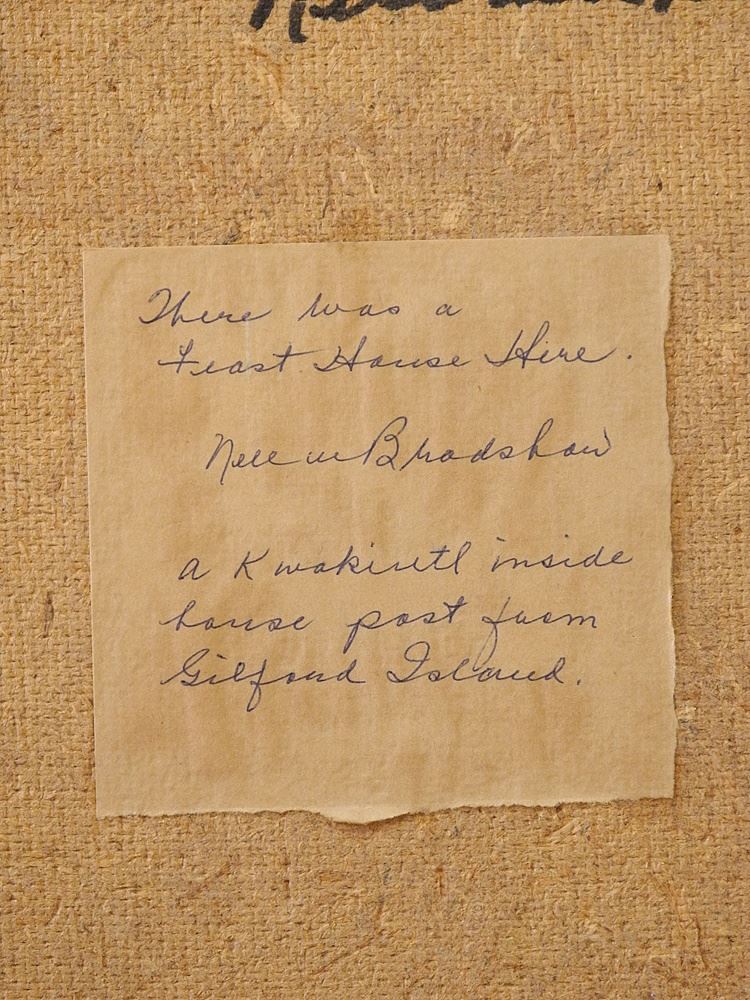 There was a
Feast House Here.
Nell M Bradshaw
a Kwakiutl inside
house post from
Gilford Island.